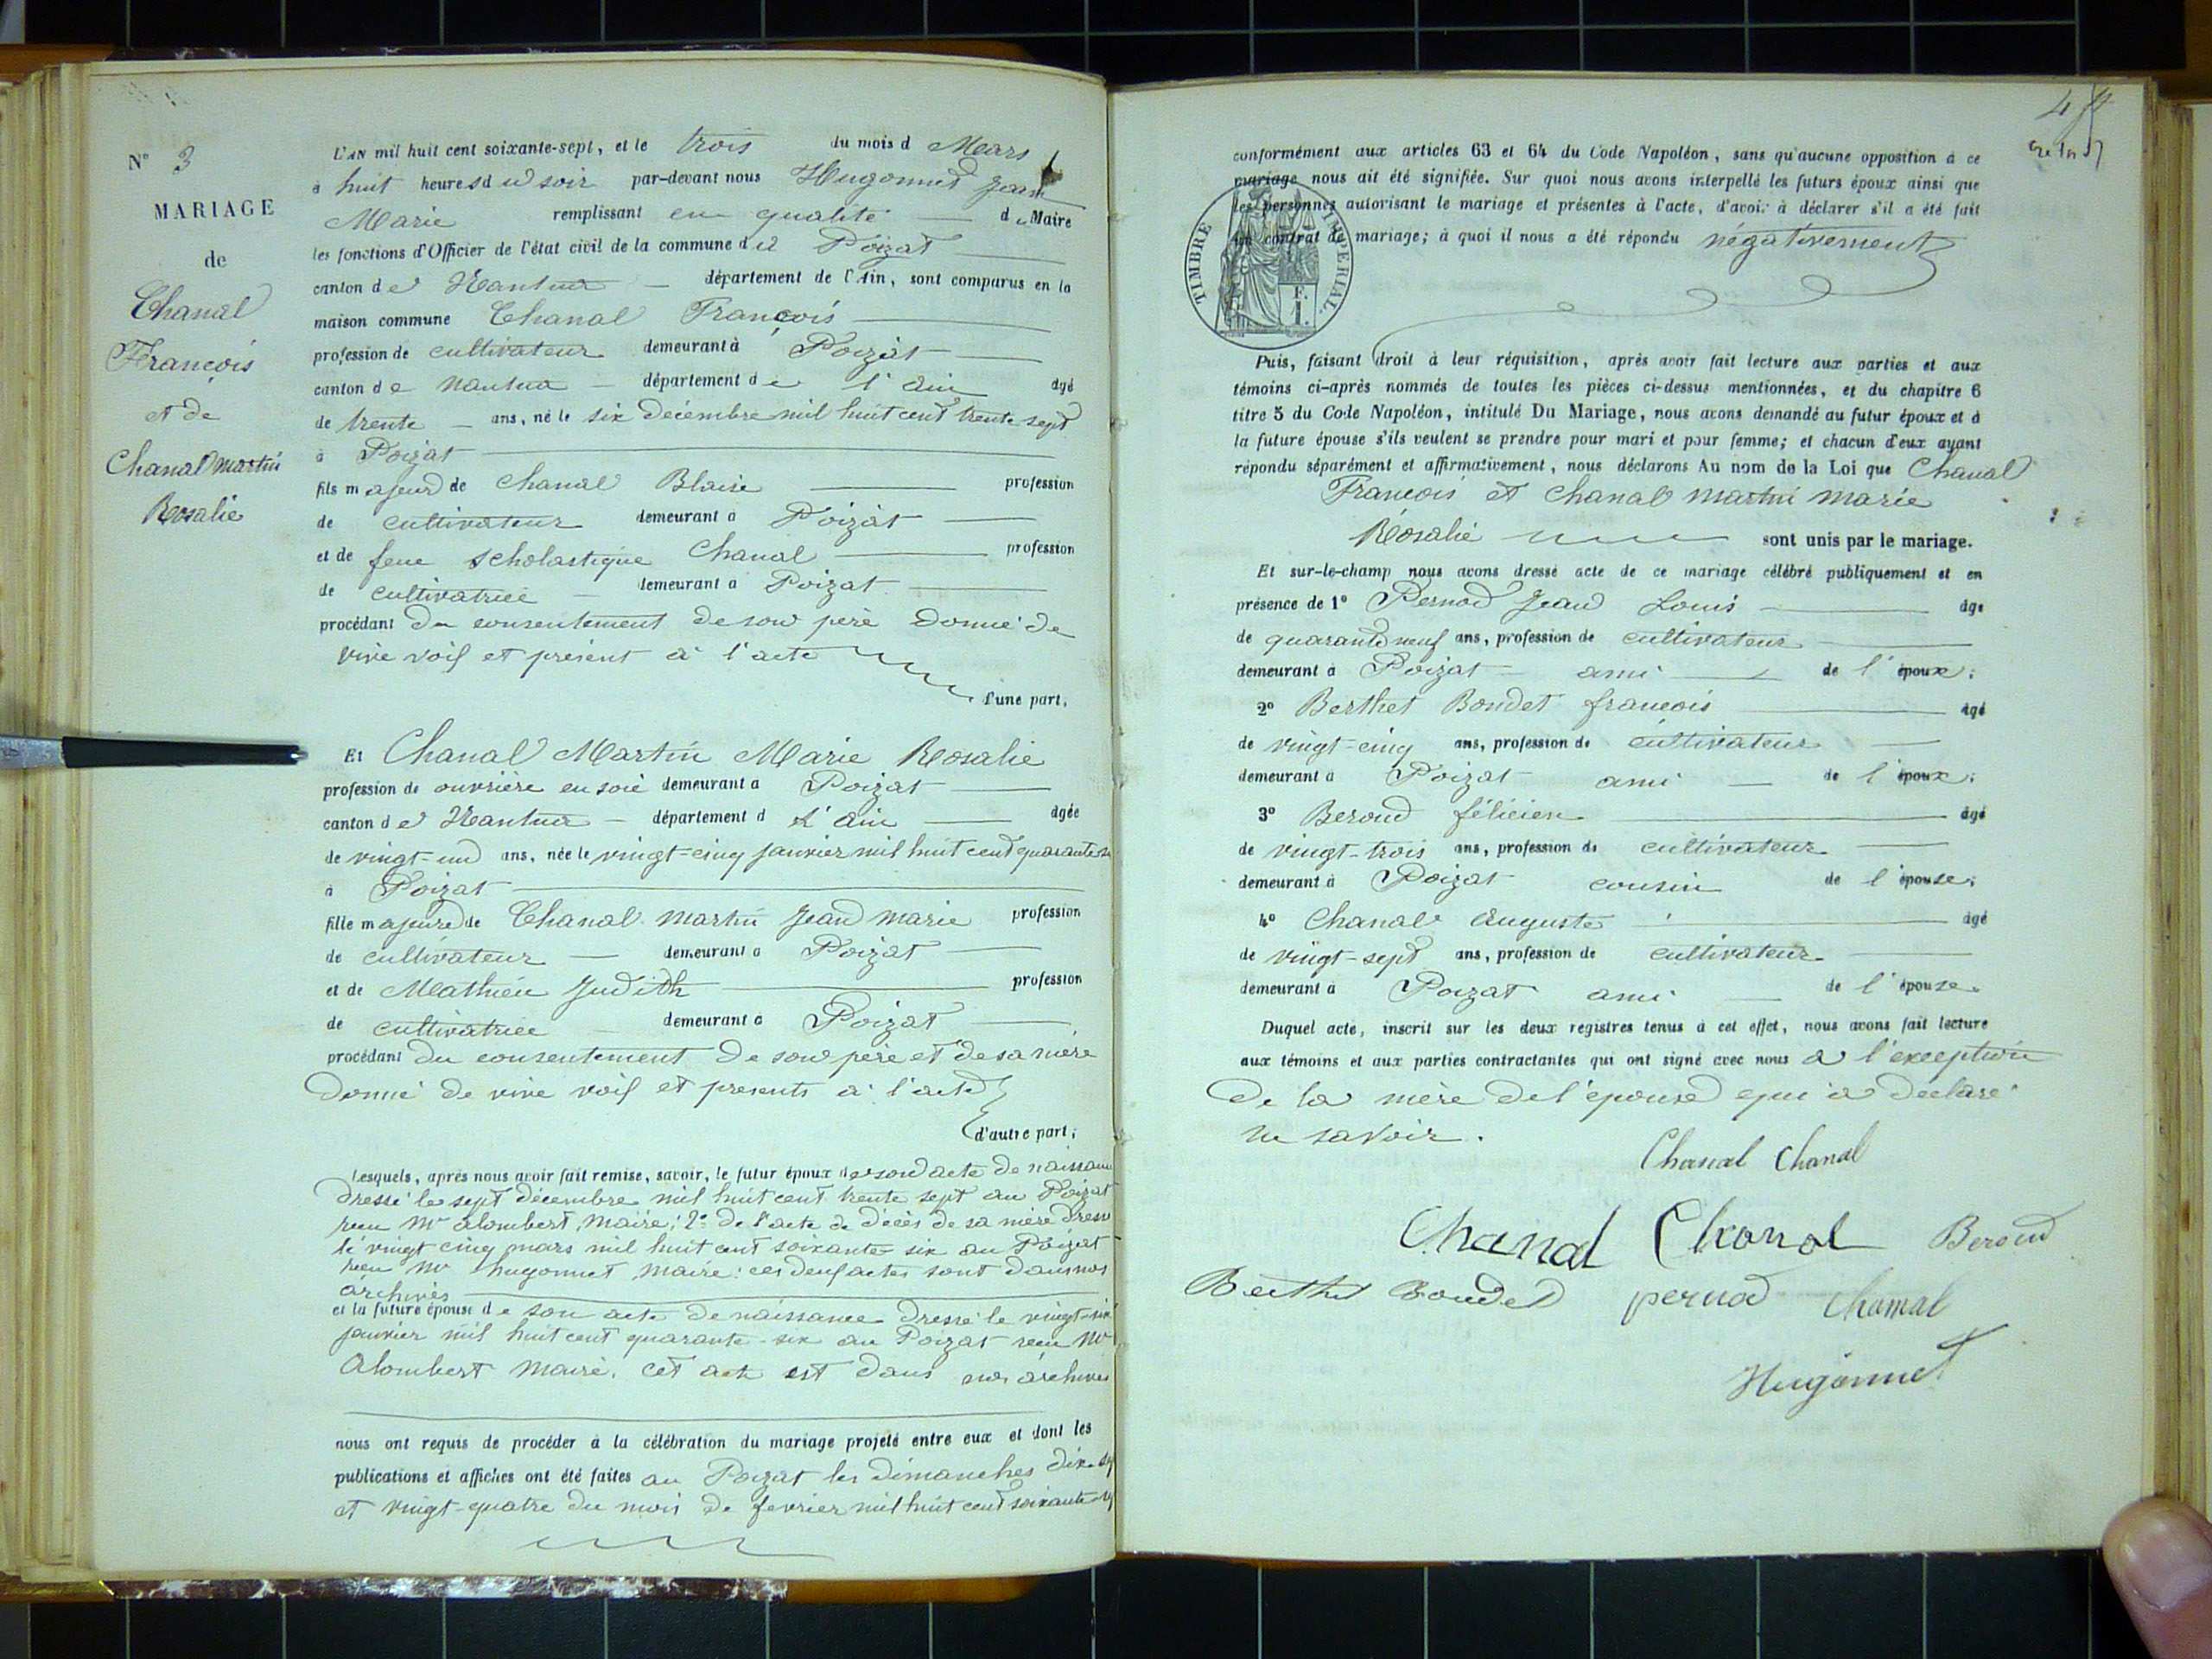 N° 3
MARIAGE
de
Chanal
François
et de
Chanal Martin
Rosalie
L'AN mil huit cent soixante-sept, et le trois du mois d Mars
à huit heures du soir par-devant nous Hugonnet Jean
Marie remplissant en qualité de Maire
les fonctions d'Officier de l'état civil de la commune du Poizat
canton de Nantua département de l'Ain, sont comparus en la
maison commune Chanal François
profession de cultivateur demeurant à Poizat
canton de nantua département de l'ain âgé
de trente ans, né le six décembre mil huit cent trente sept
à Poizat
fils majeur de Chanal Blaise profession
de cultivateur demeurant à Poizat
et de feue scholastique Chanal profession
de cultivatrice demeurant à Poizat
procédant du consentement de son père donné de
vive voif et présent à l'acte
d'une part,
Et Chanal Martin Marie Rosalie
profession de ouvrière en soie demeurant à Poizat
canton de Nantua département d l'ain âgée
de vingt-un ans, née le vingt-cinq janvier mil huit cent quarante
à Poizat
fille majeure de Chanal Martin Jean marie profession
de cultivateur demeurant à Poizat
et de Mathieu Judith profession
de cultivatrice demeurant à Poizat
procédant du consentement de son père et de sa mère
donné de vive voif et presents à l'acte
d'autre part;
Lesquels, après nous avoir fait remise, savoir, le futur époux de son acte de naissance
dressé le sept décembre mil huit cent trente sept au Poizat
reçu Mr alombert, maire; 2° de l'acte de décès de sa mère dressé
le vingt cinq mars mil huit cent soixante-six au Poizat
reçu Mr hugonnet maire: ces deuf actes sont dans nos
archives
et la future épouse de son acte de naissance dressé le vingt-six
janvier mil huit cent quarante-six au Poizat reçu Mr
Alombert maire. cet acte est dans nos archives
nous ont requis de procéder à la célébration du mariage projeté entre eux et dont les
publications et affiches ont été faites au Poizat les dimanches dix-sept
et vingt-quatre du mois de fevrier mil huit cent soixante
conformément aux articles 63 et 64 du Code Napoléon, sans qu'aucune opposition à ce
mariage nous ait été signifiée. Sur quoi nous avons interpellé les futurs époux ainsi que
les personnes autorisant le mariage et présentes à l'acte, d'avoir à déclarer s'il a été fait
un contrat de mariage; à quoi il nous a été répondu négativement
TIMBRE IMPERIAL
Puis, faisant droit à leur réquisition, après avoir fait lecture aux parties et aux
témoins ci-après nommés de toutes les pièces ci-dessus mentionnées, et du chapitre 6
titre 5 du Code Napoléon, intitulé Du Mariage, nous avons demandé au futur époux et à
la future épouse s'ils veulent se prendre pour mari et pour femme; et chacun d'eux ayant
répondu séparément et affirmativement, nous déclarons Au nom de la Loi que Chanal
François et Chanal martin marie
Rosalie sont unis par le mariage.
Et sur-le-champ nous avons dressé acte de ce mariage célébré publiquement et en
présence de 1° Pernod Jean Louis âgé
de quarante neuf ans, profession de cultivateur
demeurant à Poizat ami de l'époux;
2° Berthet Bondet françois âgé
de vingt-cinq ans, profession de cultivateur
demeurant à Poizat ami de l'époux;
3° Beroud félicien âgé
de vingt-trois ans, profession de cultivateur
demeurant à Poizat cousin de l'épouse;
4° Chanal Auguste âgé
de vingt-sept ans, profession de cultivateur
demeurant à Poizat ami de l'épouse.
Duquel acte, inscrit sur les deux registres tenus à cet effet, nous avons fait lecture
aux témoins et aux parties contractantes qui ont signé avec nous a l'exception
de la mère de l'épouse qui a déclaré
ne savoir.
Chanal Chanal
Chanal Chanal Beroud
Berthet Bondet pernod Chanal
Hugonnet